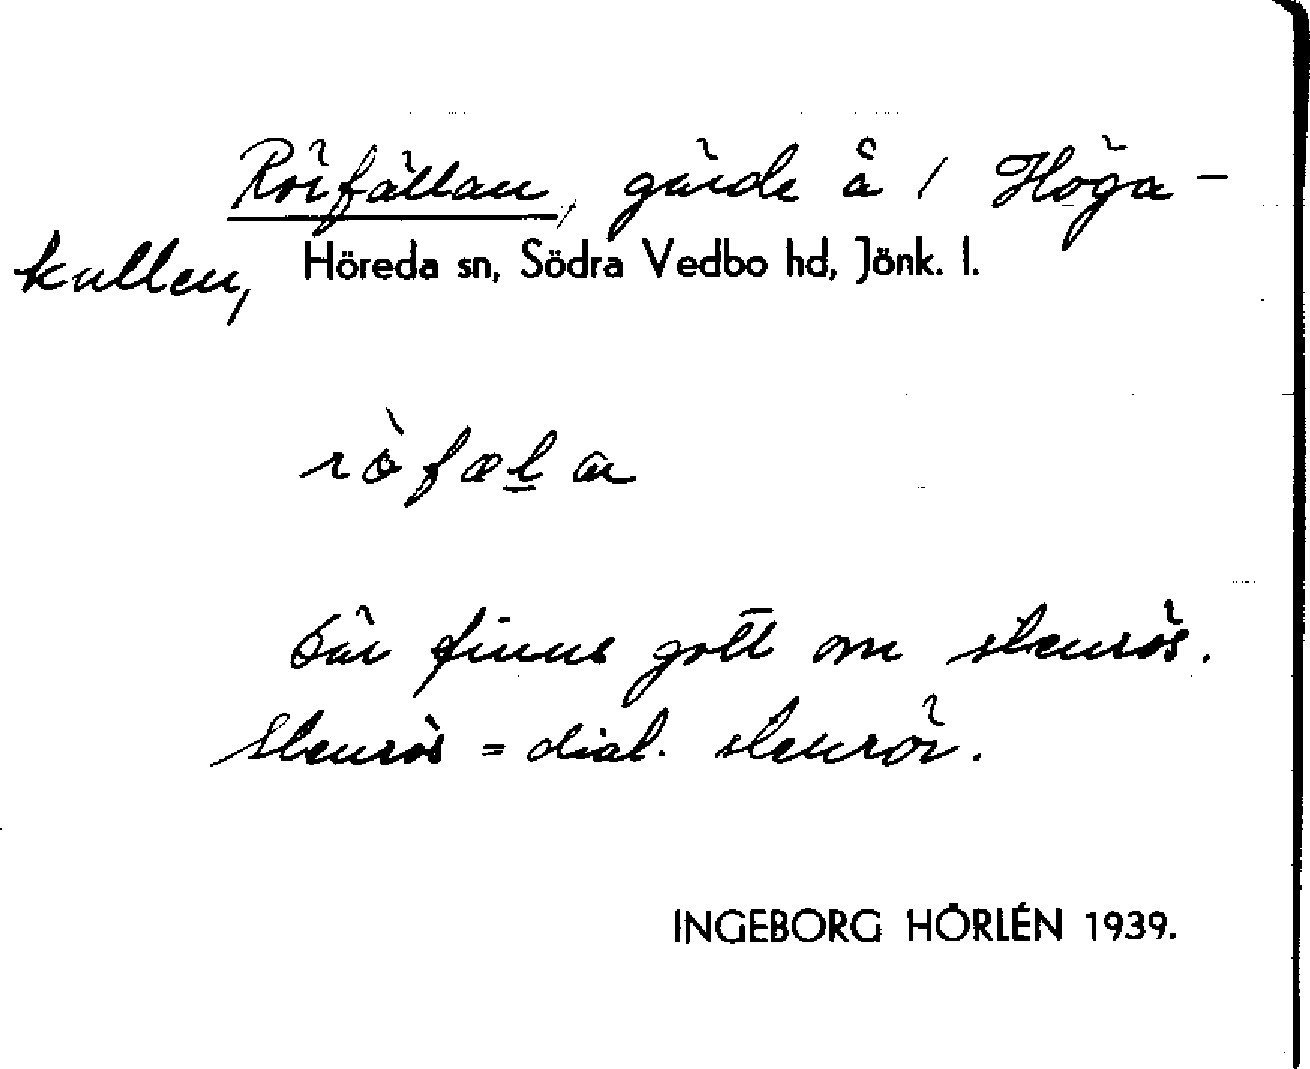 Rörfällan, gärde å 1 Höga-
kullen, Höreda sn, Södra Vedbo hd, Jönk. l.
rö̀fæla
Där finns gott om stenrös.
Stenrös = dial. stenrör.
INGEBORG HÖRLÉN 1939.